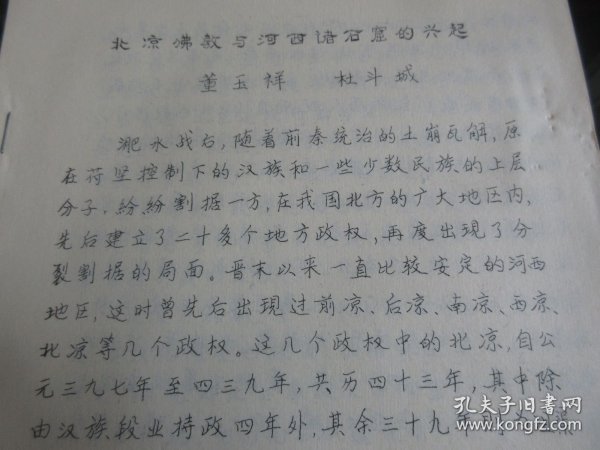 北凉佛教与河西诸石窟的兴起
董玉祥 杜斗城
淝水战后,随着前秦统治的土崩瓦解,原
在苻坚控制下的汉族和一些少数民族的上层
分子,纷纷割据一方,在我国北方的广大地区内,
先后建立了二十多个地方政权,再度出现了分
裂割据的局面。晋末以来一直比较安定的河西
地区,这时曾先后出现过前凉、后凉、南凉、西凉、
北凉等几个政权。这几个政权中的北凉,自公
元三九七年至四三九年,共历四十三年,其中除
由汉族段业持政四年外,其余三十九年
孔夫子旧书网
www.kongfz.com